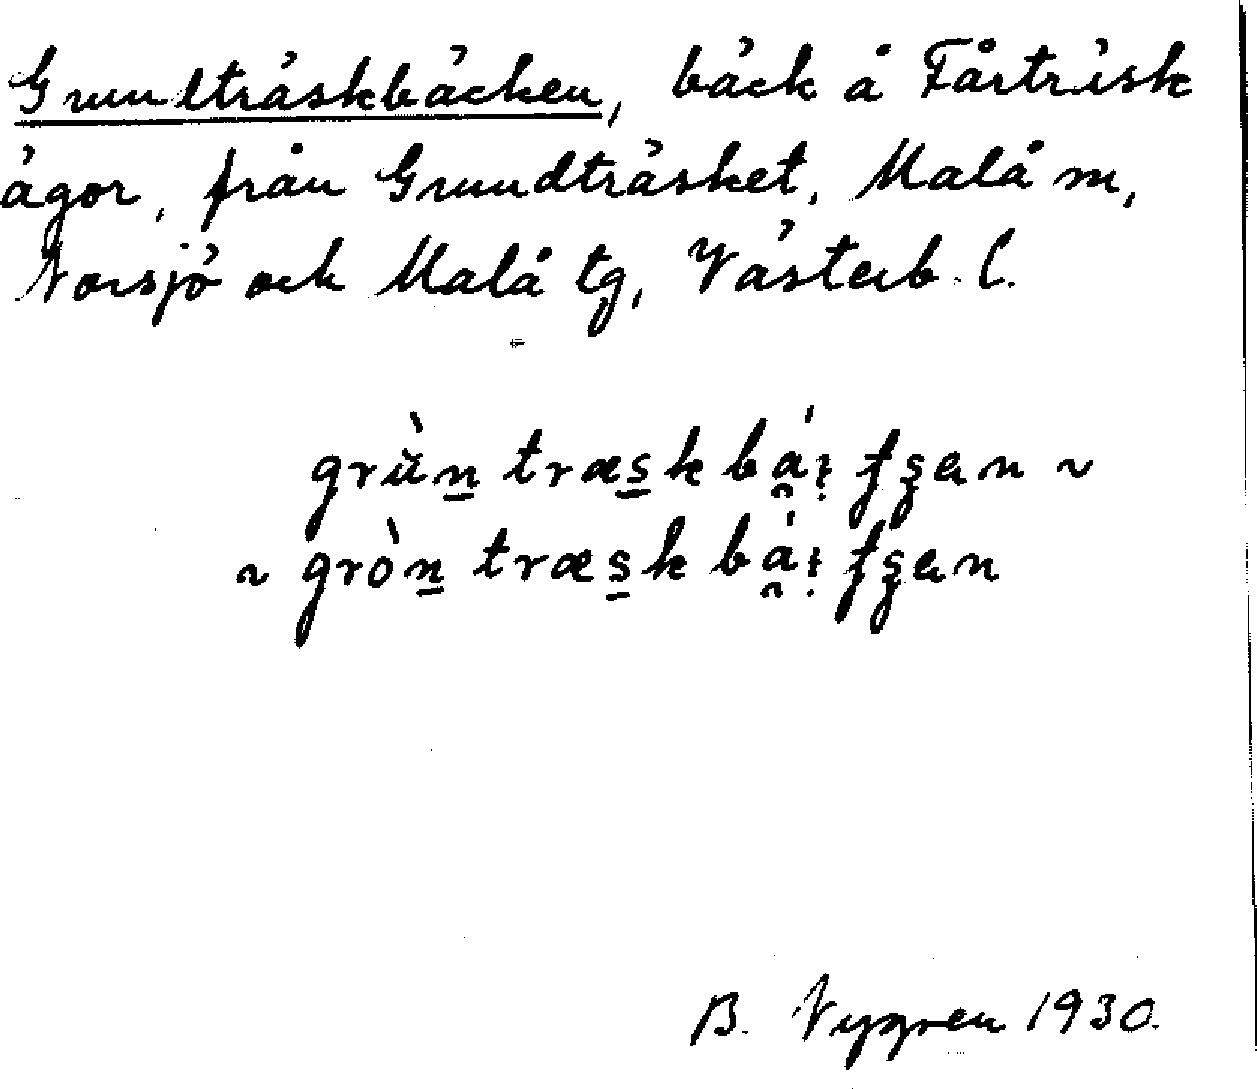 Grundträskbäcken, bäck å Fårträsk
ägor, från Grundträsket, Malå m,
Norsjö och Malå tg, Västerb. l.
grùn træsk bá̯ı fʒen ~
~ gròn træsk bá̯ı fʒen
B. Nygren 1930.